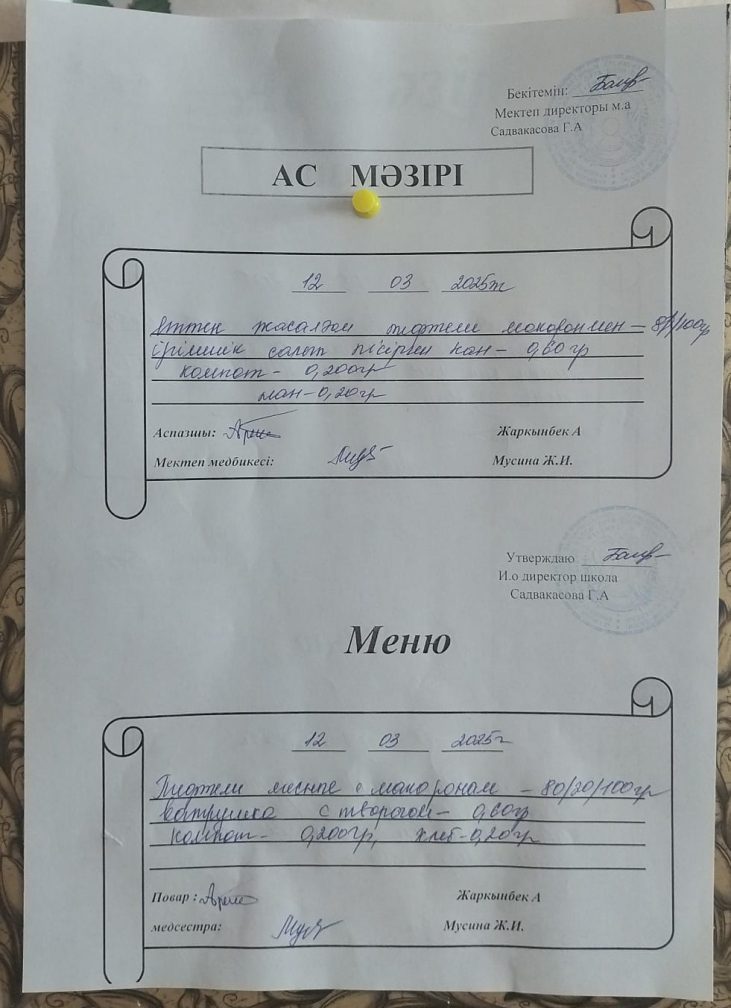 Бекітемін:
Мектеп директоры м.а
Садвакасова Г.А
АС МӘЗІРІ
12 03 2025ж
Еттен жасалған тефтели макоронмен – 80/100гр
Ірімшік салып пісірген нан – 0,60 гр
компот – 0,200гр
нан – 0,20гр
Аспазшы: Жаркынбек А
Мектеп медбикесі: Мусина Ж.И.
Утверждаю
И.о директор школа
Садвакасова Г.А
Меню
12 03 2025г
Тефтели мясные с макоронам – 80/20/100гр
ватрушка с творогом – 0,60гр
компот – 0,200гр, хлеб – 0,20гр
Повар : Жаркынбек А
медсестра: Мусина Ж.И.